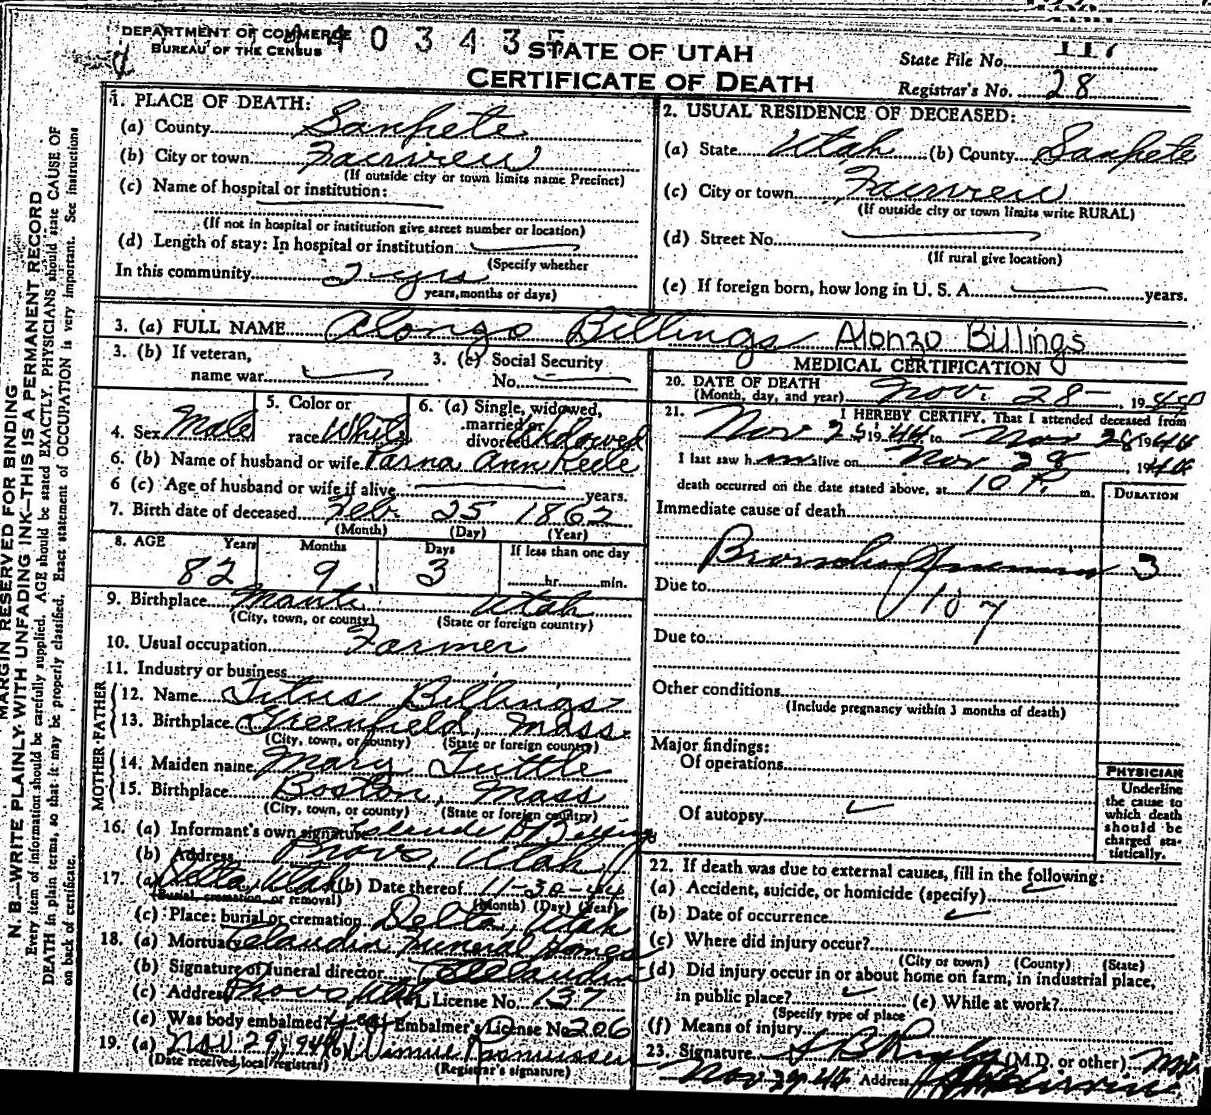 DEPARTMENT OF COMMERCE
BUREAU OF THE CENSUS
STATE OF UTAH
CERTIFICATE OF DEATH
State File No. 117
Registrar's No. 28
MARGIN RESERVED FOR BINDING
N. B.—WRITE PLAINLY, WITH UNFADING INK—THIS IS A PERMANENT RECORD
Every item of information should be carefully supplied. AGE should be stated EXACTLY. PHYSICIANS should state CAUSE OF
DEATH in plain terms, so that it may be properly classified. Exact statement of OCCUPATION is very important. See instructions
on back of certificate.
1. PLACE OF DEATH:
(a) County Sanpete
(b) City or town Fairview
(If outside city or town limits name Precinct)
(c) Name of hospital or institution:
(If not in hospital or institution give street number or location)
(d) Length of stay: In hospital or institution
(Specify whether
In this community 2 yrs
years, months or days)
2. USUAL RESIDENCE OF DECEASED:
(a) State Utah (b) County Sanpete
(c) City or town Fairview
(If outside city or town limits write RURAL)
(d) Street No.
(If rural give location)
(e) If foreign born, how long in U. S. A. years.
3. (a) FULL NAME Alonzo Billings Alonzo Billings
3. (b) If veteran,
name war
3. (c) Social Security
No.
4. Sex Male
5. Color or
race White
6. (a) Single, widowed,
married or
divorced Widowed
6. (b) Name of husband or wife Parna Ann Keele
6 (c) Age of husband or wife if alive years.
7. Birth date of deceased Feb. 25 1862
(Month) (Day) (Year)
8. AGE Years Months Days If less than one day
82 9 3 hr. min.
9. Birthplace Manti Utah
(City, town, or county) (State or foreign country)
10. Usual occupation Farmer
11. Industry or business
FATHER
12. Name Titus Billings
13. Birthplace Greenfield, Mass.
(City, town, or county) (State or foreign country)
MOTHER
14. Maiden name Mary Tuttle
15. Birthplace Boston, Mass
(City, town, or county) (State or foreign country)
16. (a) Informant's own signature Billings
(b) Address Provo, Utah
17. (a) Delta, Utah (b) Date thereof 11-30-44
(Burial, cremation, or removal) (Month) (Day) (Year)
(c) Place: burial or cremation Delta, Utah
18. (a) Mortuary Claudin Funeral Home
(b) Signature of funeral director
(c) Address Provo, Utah License No. 137
(e) Was body embalmed? yes Embalmer's License No. 206
19. (a) Nov 29, 1944 (b) Rasmussen
(Date received local registrar) (Registrar's signature)
MEDICAL CERTIFICATION
20. DATE OF DEATH
(Month, day, and year) Nov. 28— 1944
21. I HEREBY CERTIFY, That I attended deceased from
Nov 25 1944 to Nov 28 1944
I last saw him alive on Nov 28, 1944
death occurred on the date stated above, at 10 P. m.
DURATION
Immediate cause of death
Broncho Pneumonia 3
Due to
107
Due to
Other conditions
(Include pregnancy within 3 months of death)
Major findings:
Of operations
Of autopsy
PHYSICIAN
Underline
the cause to
which death
should be
charged sta-
tistically.
22. If death was due to external causes, fill in the following:
(a) Accident, suicide, or homicide (specify)
(b) Date of occurrence
(c) Where did injury occur?
(City or town) (County) (State)
(d) Did injury occur in or about home on farm, in industrial place,
in public place? (e) While at work?
(Specify type of place
(f) Means of injury
23. Signature (M.D. or other) M.D.
Nov 29 44 Address